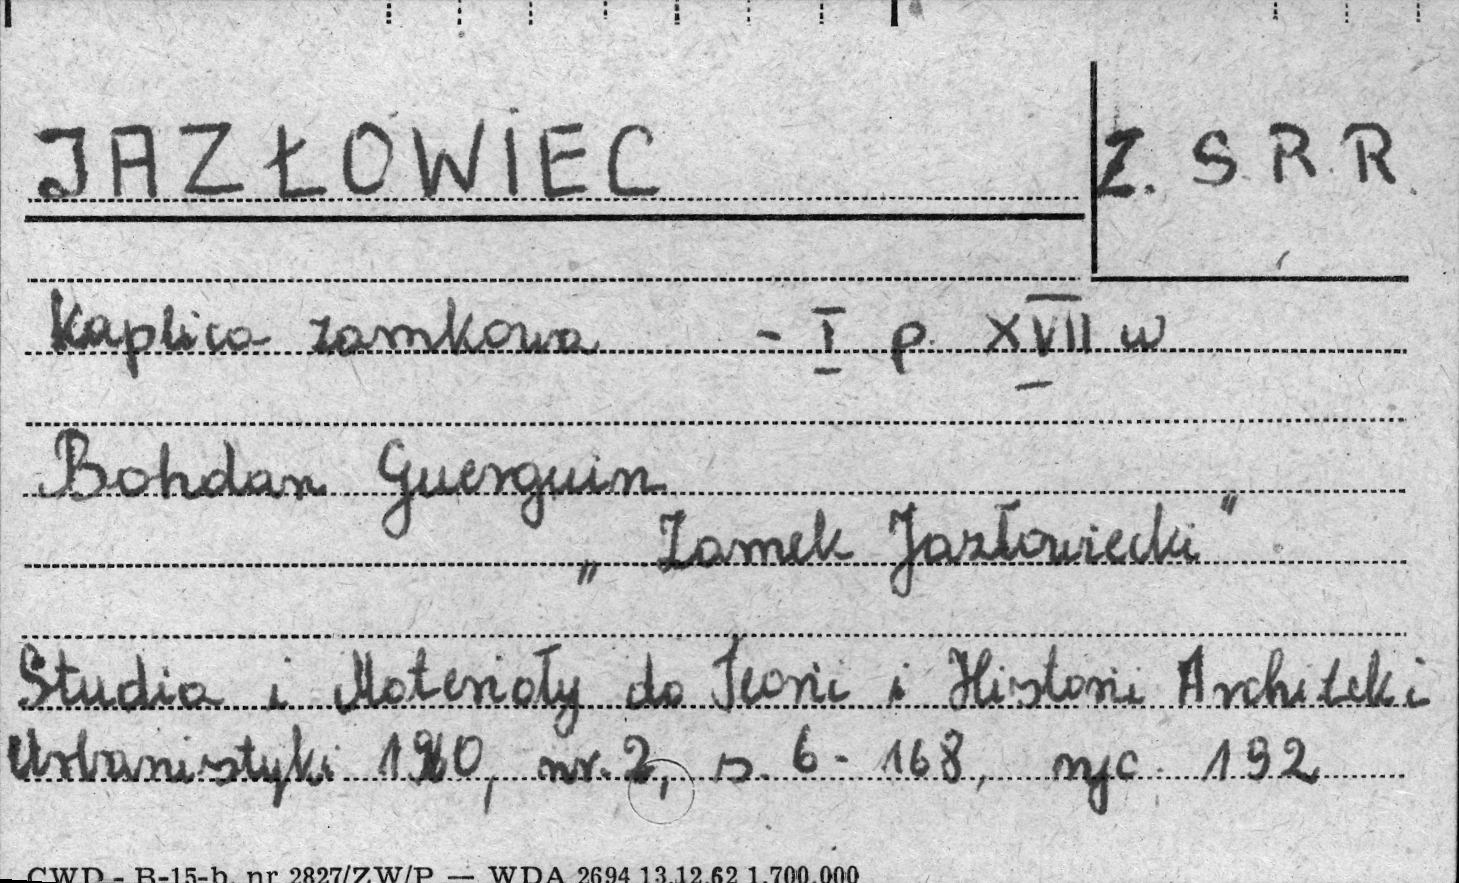 JAZŁOWIEC
Z.S.R.R.
Kaplica zamkowa - I p. XVII w
Bohdan Guerquin
„Zamek Jazłowiecki"
Studia i Materiały do Teorii i Historii Architek i
Urbanistyki 1960, nr. 2, s. 6-168, ryc. 192
CWD - B-15-b, nr 2827/ZW/P — WDA 2694 13.12.62 1.700.000